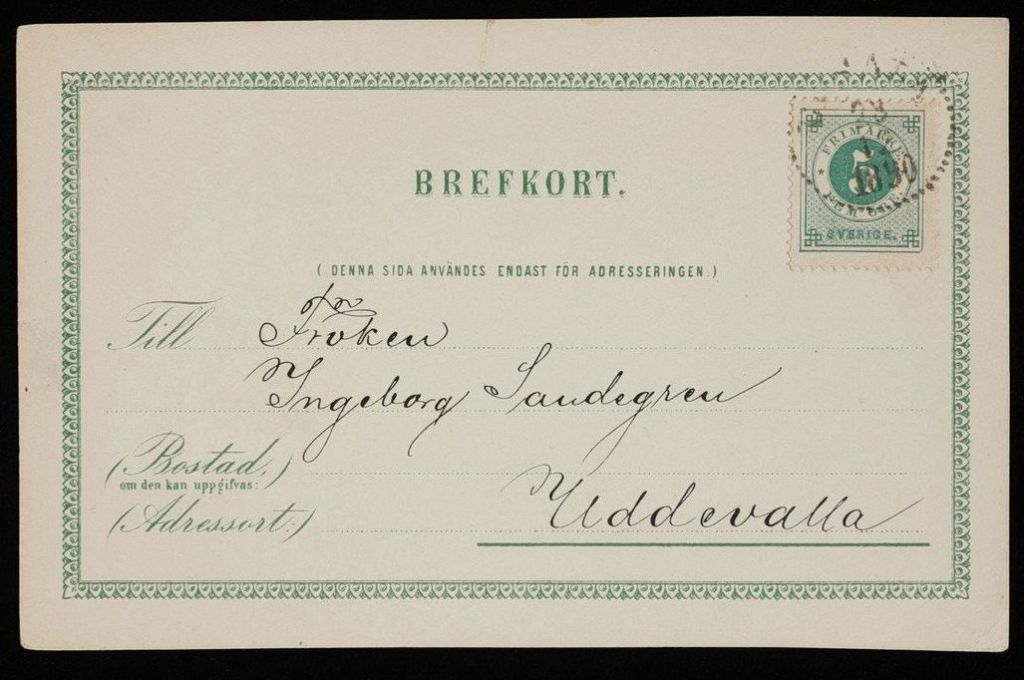 BREFKORT.
FRIMÄRKE
5
SVERIGE.
1890
(DENNA SIDA ANVÄNDES ENDAST FÖR ADRESSERINGEN.)
Till Fröken
Ingeborg Sandegren
(Bostad,)
om den kan uppgifvas:
Uddevalla
(Adressort:)